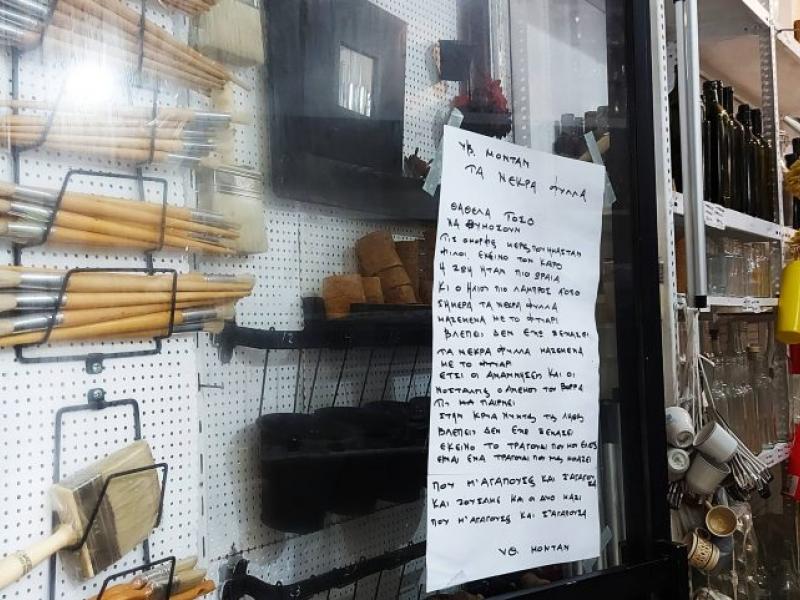 ΥΒ. ΜΟΝΤΑΝ
ΤΑ ΝΕΚΡΑ ΦΥΛΛΑ
ΘΑΘΕΛΑ ΤΟΣΟ
ΝΑ ΘΥΜΟΣΟΥΝ
ΤΙΣ ΟΜΟΡΦΕΣ ΜΕΡΕΣ ΠΟΥ ΗΜΑΣΤΑΝ
ΦΙΛΟΙ. ΕΚΕΙΝΟ ΤΟΝ ΚΑΙΡΟ
Η ΖΩΗ ΗΤΑΝ ΠΙΟ ΩΡΑΙΑ
ΚΙ Ο ΗΛΙΟΣ ΠΙΟ ΛΑΜΠΡΟΣ
ΣΗΜΕΡΑ ΤΑ ΝΕΚΡΑ ΦΥΛΛΑ
ΜΑΖΕΜΕΝΑ ΜΕ ΤΟ ΦΤΙΑΡΙ
ΒΛΕΠΕΙΣ ΔΕΝ ΕΧΩ ΞΕΧΑΣΕΙ
ΤΑ ΝΕΚΡΑ ΦΥΛΛΑ ΜΑΖΕΜΕΝΑ
ΜΕ ΤΟ ΦΤΥΑΡΙ
ΕΤΣΙ ΟΙ ΑΝΑΜΝΗΣΕΙΣ ΚΑΙ ΟΙ
ΝΟΣΤΑΛΓΙΕΣ Ο ΑΝΕΜΟΣ ΤΟΥ ΒΟΡΡΑ
ΤΙΣ ΠΑΙΡΝΕΙ
ΣΤΗΝ ΚΡΥΑ ΝΥΧΤΑ ΤΗΣ ΛΗΘΗΣ
ΒΛΕΠΕΙΣ ΔΕΝ ΕΧΩ ΞΕΧΑΣΕΙ
ΕΚΕΙΝΟ ΤΟ ΤΡΑΓΟΥΔΙ ΠΟΥ ΜΟΥ ΕΛΕΓΕΣ
ΕΙΝΑΙ ΕΝΑ ΤΡΑΓΟΥΔΙ ΠΟΥ ΜΑΣ ΜΟΙΑΖΕΙ
ΠΟΥ Μ'ΑΓΑΠΟΥΣΕΣ ΚΑΙ Σ'ΑΓΑΠΟΥΣΑ
ΚΑΙ ΖΟΥΣΑΜΕ ΚΑΙ ΟΙ ΔΥΟ ΜΑΖΙ
ΠΟΥ Μ'ΑΓΑΠΟΥΣΕΣ ΚΑΙ Σ'ΑΓΑΠΟΥΣΑ
ΥΒ. ΜΟΝΤΑΝ